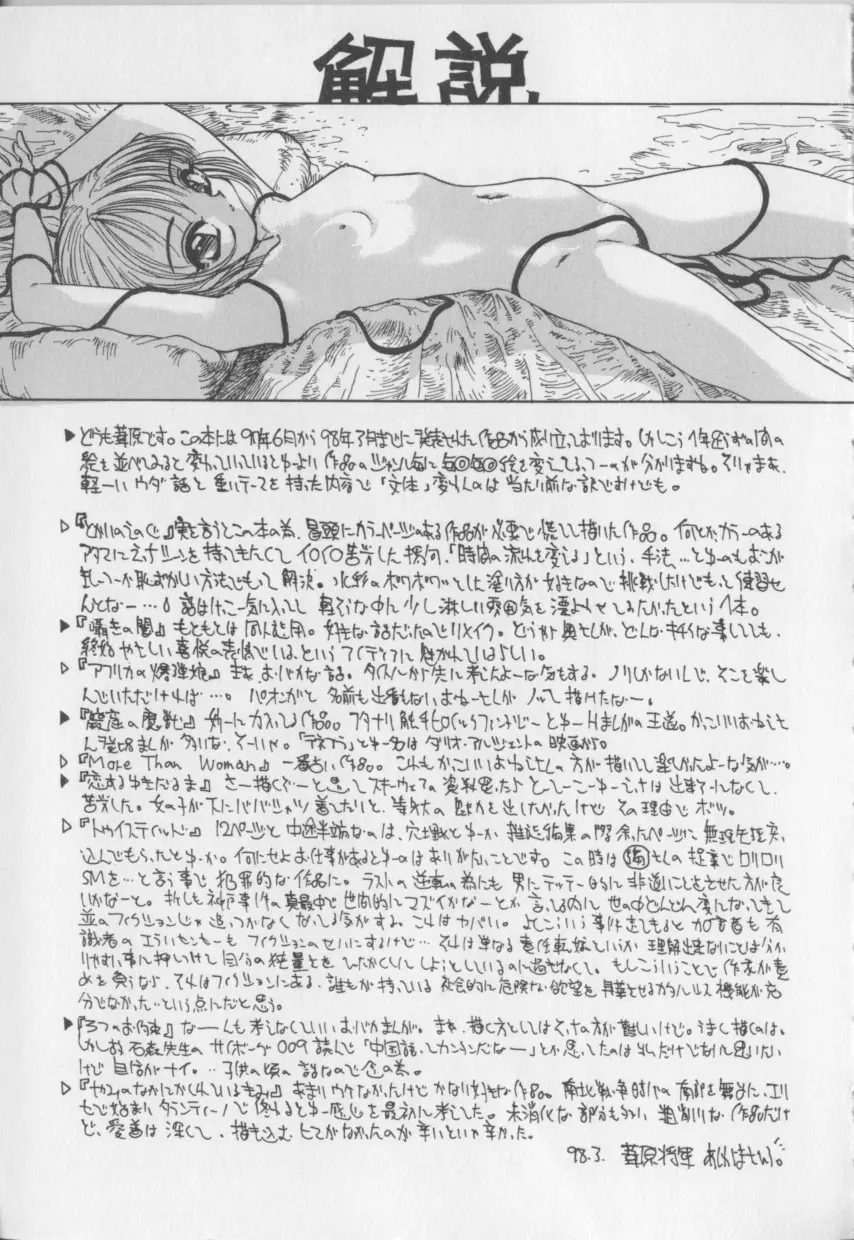 解説
▶どうも葦原です。この本は97年6月から98年3月までに発表された作品から成り立っております。しかしこう1年近くの間の
絵を並べてみると変わっていっているとゆーより作品のジャンル毎に毎回毎回絵を変えてるってーのが分かりますね。そりゃまあ、
軽ーいウダ話と重いテーマを持った内容で「文体」変わんのは当たり前な訳ですけども。
実を言うとこの本の為、冒頭にカラーページのある作品が必要で慌てて描いた作品。何とか、カラーのある
アタマにエッチシーンを持ってきたくてイロイロ苦労した揚句、「時間の流れを変える」という、手法…とゆーのもおこが
ましいってーか恥ずかしい方法でもって解決。水彩のポワポワッとした塗り方が好きなので挑戦したけどもっと練習せ
んとなー…。話はけっこー気に入ってて軽そうな中に少し淋しい雰囲気を漂よわせてみたかったという1本。
▶『囁きの闇』もともとは同人誌用。好きな話だったのでリメイク。どうか奥さんが、どんなキチクな事してても、
終始やさしい喜悦の表情でいる、というアイディアに
▷『アフリカの爆弾娘』まあ、おバカな話。タイトルから先に考えたよーな気もする。ノリしかないんで、そこを楽し
んでいただければ…。パオンがと名前も出番もないおねーさんがノって描けたなー。
フタナリ触手エロ
ん登場まんが多いな、そーいや。「テネブラ」とゆー名はダリオ・アルジェントの映画から。
▷『More Than Woman』一番古い作品。これもかっこいいおねーさんの方が描いてて楽しかったよーな気が…。
▶『恋するゆきだるま』さー描くぞーと思ってスキーウェアの資料
苦労した。女の子が下にババシャツ着てたりと、等身大の魅力を出したかったけどその理由でボツ。
▷『トゥイステイルド』12ページと中途半端なのは、穴埋めとゆーか雑誌編集の際余ったページに無理矢理突っ
込んでもらったとゆーか。何にせよお仕事があるとゆーのはありがたいことです。この時は編さんの提案でロリロリ
SMを…と言う事で犯罪的な作品に。ラストの逆転の為にも男にテッテー的に非道いことをさせた方が良
いかなーと。折しも神戸事件の真最中で世間的にマズイかなーとか言ってるのに世の中どんどん変になってきて
並のフィクションじゃ追いつかなくなってる気がする。これはヤバい。よくこういう事件おきてくると加害者も有
識者のエライセンセーもフィクションのせいにするけど…それは単なる責任転嫁というか理解出来ないことは分か
りやすい事に押しつけて自分の
めを負うなら、それはフィクションにある、誰もが持っている社会的に危険な欲望を昇華させるカタルシス機能が充
分でなかったという点にだと思う。
▶『3つのお約束』なーんも考えなくていいおバカまんが。まあ、描く方としてはその方が難しいけど。うまく描くのは、
しかしお石森先生のサイボーグ009読んで「中国語ってカンタンだなー」とか思ってたのは
けど自信がナイ。…子供の頃の話なので念の為。
あまりウケなかったけどかなり好きな作品。南北戦争時代の南部を舞台に、エロ
もので始まりタランティーノで終わるとゆー感じを最初に考えてた。未消化な部分も多い粗削りな作品だけ
ど、愛着は深くて、描き込むヒマがなかったのが辛いといや辛かった。
98.3. 葦原将軍